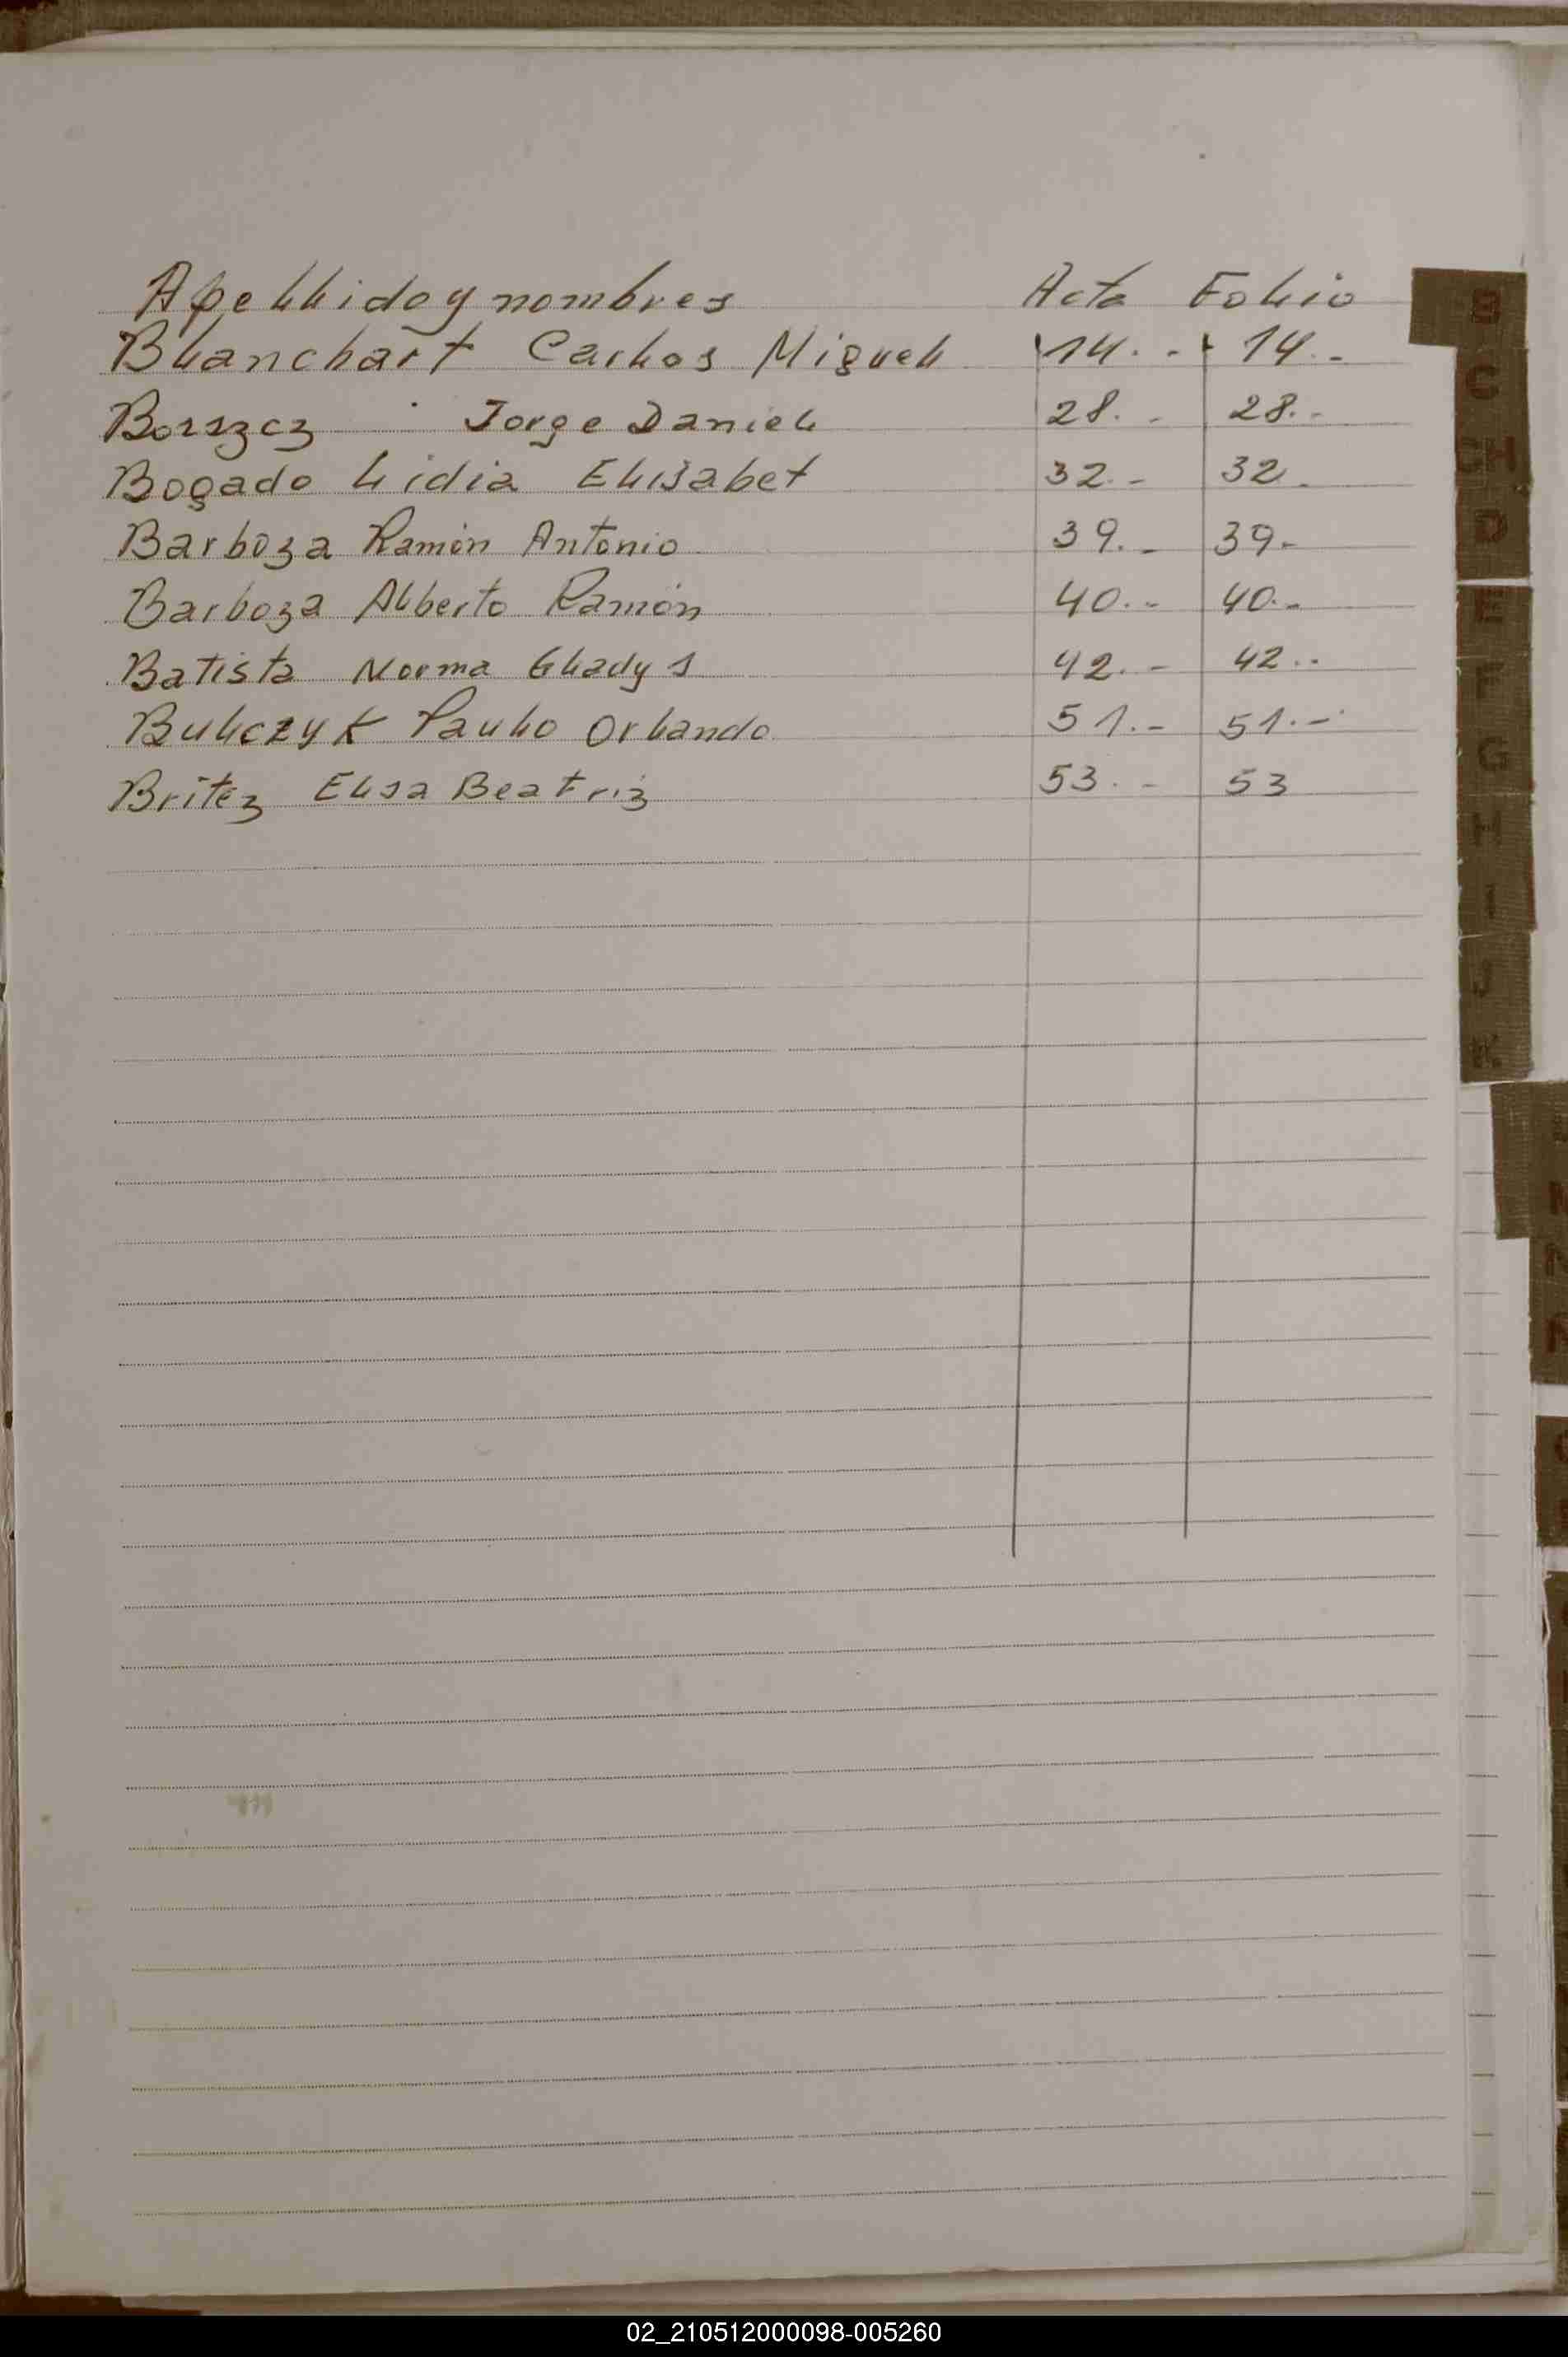 Apellido y nombres Acta Folio
Blanchart Carlos Miguel 14.- 14.-
Borszcz Jorge Daniel 28.- 28.-
Bogado Lidia Elisabet 32.- 32.
Barboza Ramón Antonio 39.- 39-
Barboza Alberto Ramón 40.- 40.-
Batista Norma Gladys 42.- 42..
Bulczyk Paulo Orlando 51.- 51.-
Britez Elisa Beatriz 53.- 53
B
C
CH
D
E
F
G
H
I
J
K
02_210512000098-005260